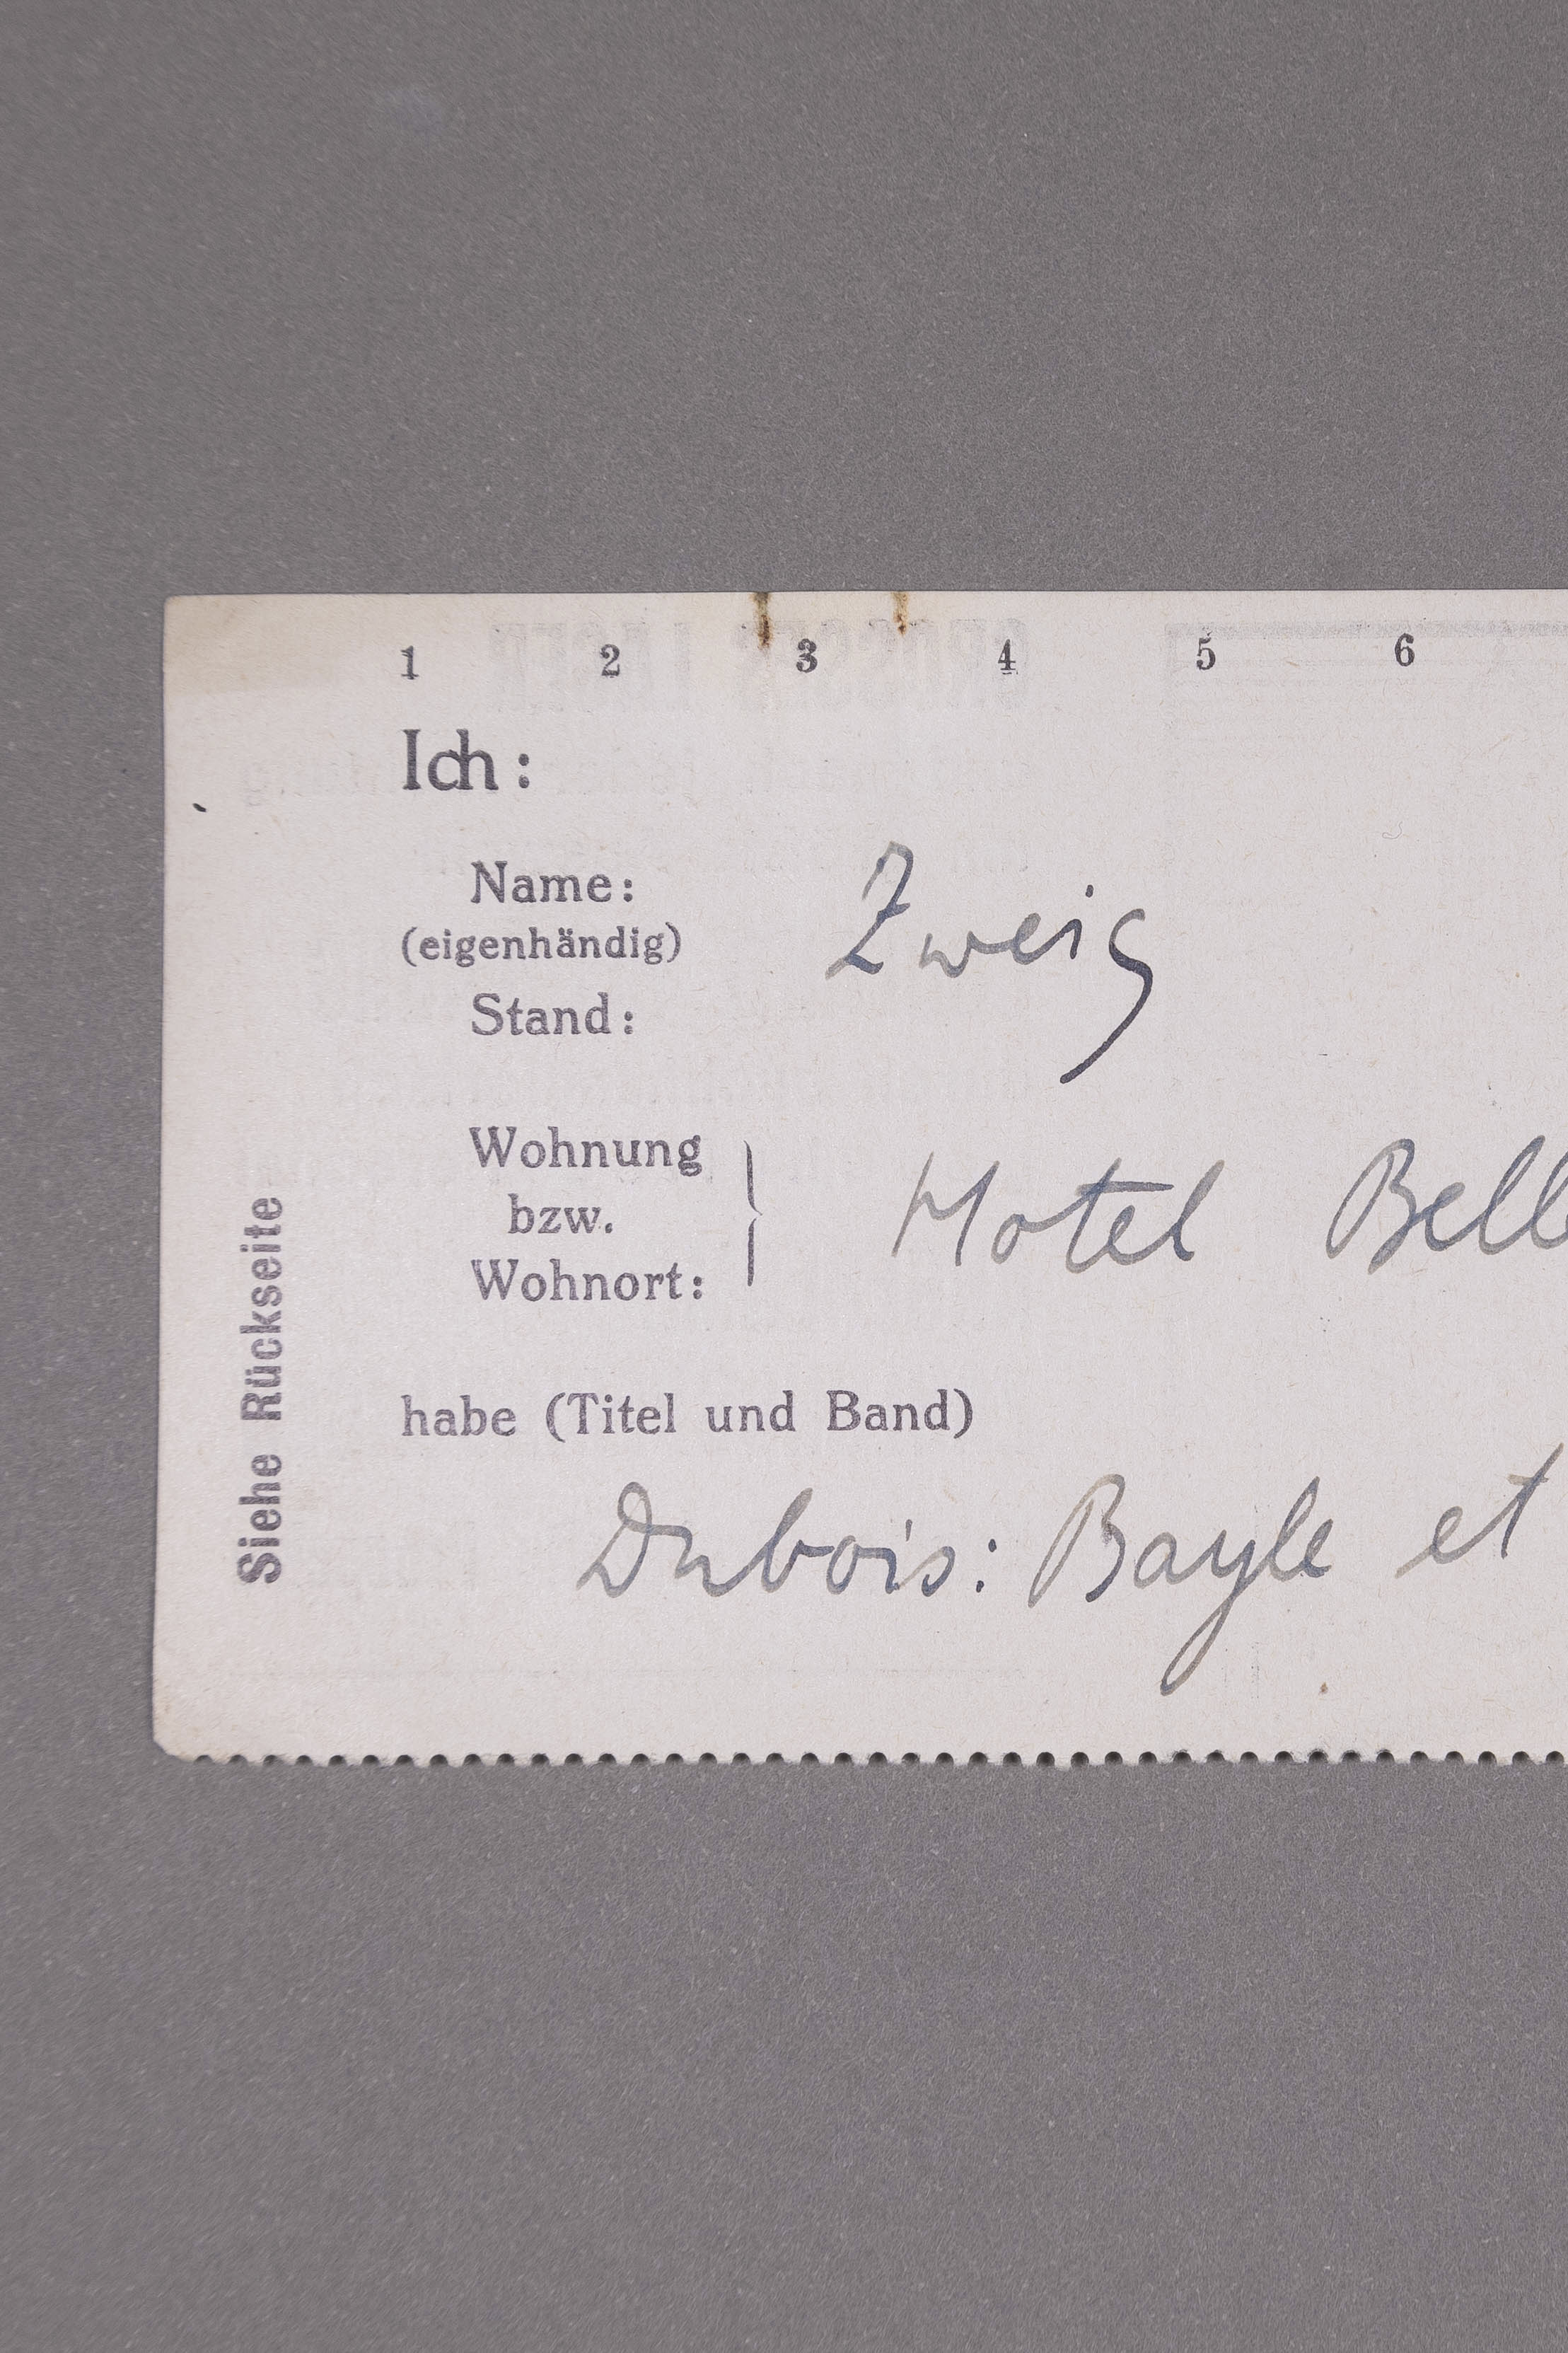 1 2 3 4 5 6
Ich:
Name: Zweig
(eigenhändig)
Stand:
Wohnung
bzw.
Wohnort: Hotel Belle
habe (Titel und Band)
Dubois: Bayle et
Siehe Rückseite